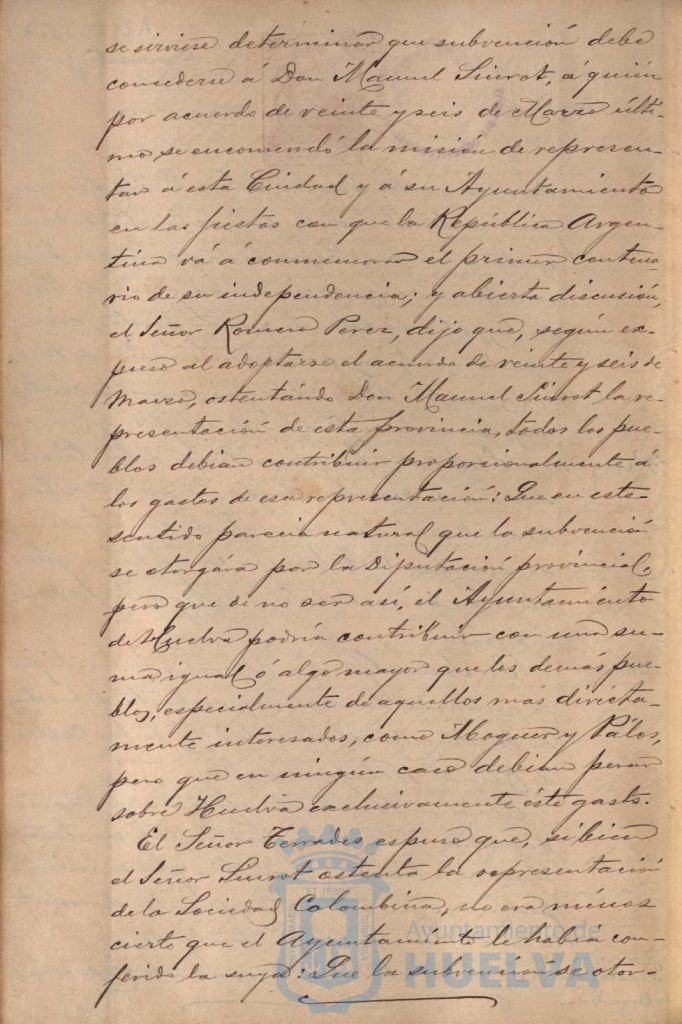 se sirviese determinar que subvención debe
consederse á Don Manuel Siurot, á quién
por acuerdo de veinte y seis de Marzo últi-
mo se encomendó la misión de represen-
tar á esta Ciudad y á su Ayuntamiento
en las fiestas con que la República Argen-
tina vá á conmemorar el primer centena-
rio de su independencia; y abierta discusión,
el Señor Romero Perez, dijo que, según ex-
puso al adoptarse el acuerdo de veinte y seis de
Marzo, ostentándo Don Manuel Siurot la re-
presentación de ésta provincia, todos los pue-
blos debian contribuir proporcionalmente á
los gastos de esa representación: Que en este
sentido parecia natural que la subvención
se otorgára por la Diputación provincial,
pero que de no ser así, el Ayuntamiento
de Huelva podría contribuir con una su-
ma igual ó algo mayor que los demás pue-
blos, especialmente de aquellos más diréctа-
mente interesados, como Moguer y Pálos,
pero que en ningún caso debian pesar
sobre Huelva exclusivamente éste gasto.
El Señor Terrades espuso que, si bien
el Señor Siurot ostenta la representación
de la Sociedad Colombina, no era ménos
cierto que el Ayuntamiento le había con-
ferido la suya: Que la subvención se otor-
Ayuntamiento de
HUELVA